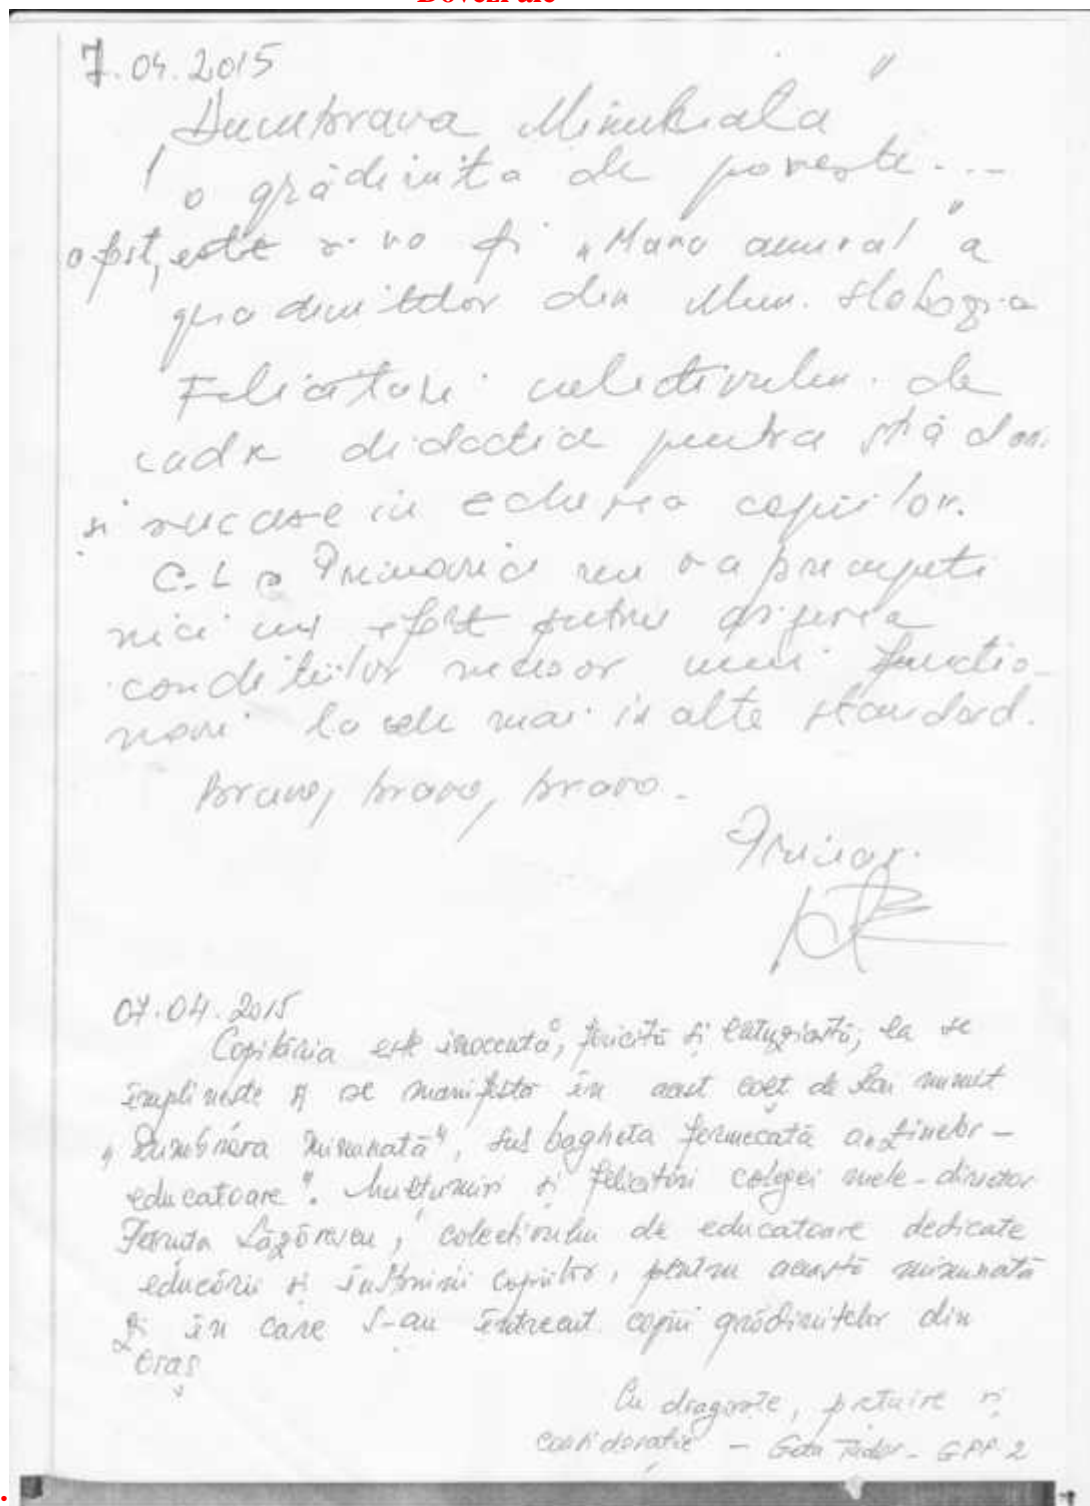 Dovezi ale
7.04.2015
„Dumbrava Minunată”
o grădiniță de poveste...
a fost, este și va fi „Mana amiral” a
gradinitelor din Mun. Slobozia
Felicitari colectivului de
cadre didactice pentru
și succese in educarea copiilor.
C.L și Primaria nu va precupeti
nici un efort pentru asigurarea
conditiilor necesare unei functio-
nari la cele mai inalte standard.
Bravo, bravo, bravo.
Primar.
07.04.2015
Copilăria este inocentă, fericită și entuziastă, ea se
împlinește și se manifestă în acest colț de Rai numit
„Dumbrava minunată”, sub bagheta fermecată a „zînelor –
educatoare”. Mulțumiri și felicitări colegei mele – director
Lăzărescu, colectivului de educatoare dedicate
educării și instruirii copiilor, pentru această minunată
zi în care s-au întrecut copiii grădinitelor din
oraș
Cu dragoste, prețuire și
considerație – Geta Tudor – GPP 2